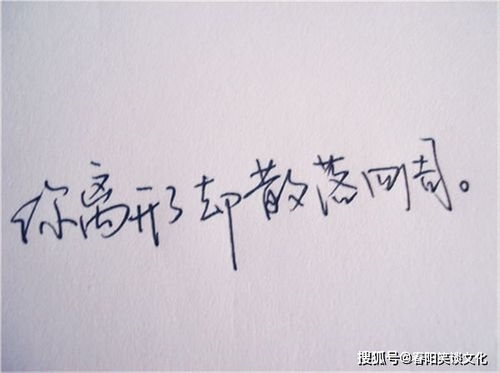 你离开了却散落四周。
搜狐号@春阳笑谈文化